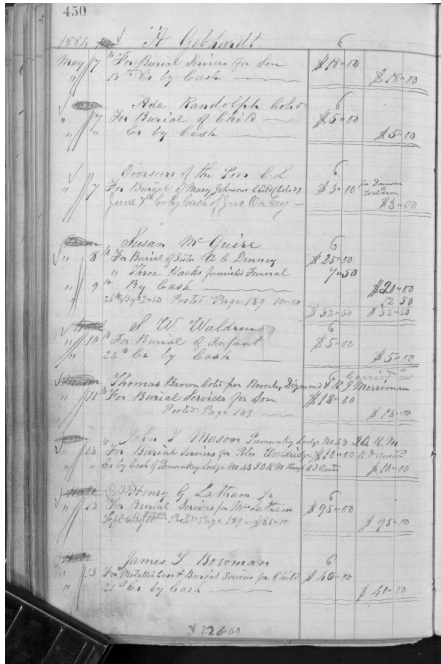 450
1884 H Gebhardt 6
May 17 For Burial Services for Son $18.00
18th Cr by Cash $18.00
Ada Randolph Cold 6
" 7 For Burial of Child $5.00
" " Cr by Cash $5.00
Overseers of the Poor C L 6
" 7 For Burial of Mary Johnsons Child (Cold) $3.00
June 7th Cr by Cash of $3.00
Susan McGuire 6
" 8 For Burial of Sister $25.00
" Three Hacks Funeral 7.50
" 9 By Cash $20.00
25th By $2.50 Posted Page 189 10.00 12 50
$32.50 $32.50
S W Waldrop 6
" 10 For Burial of Infant $5.00
" 24th Cr by Cash $5.00
Thomas Brown Cold for Merriman
" 11 For Burial Services for Son $18.00
Posted Page 183 $18.00
John T Mason Pamunkey Lodge No 43
" 13 For Burial Services for $10.00
" " Cr by Cash of Pamunkey Lodge No 43 $10.00
Henry G Latham Jr 6
" 13 For Burial Services for Mrs Latham $95.00
Posted Page 189 $95.00
James T Bowman 6
" 13 For Metallic Case & Burial Services for Child $40.00
21st Cr by Cash $40.00
$226.50